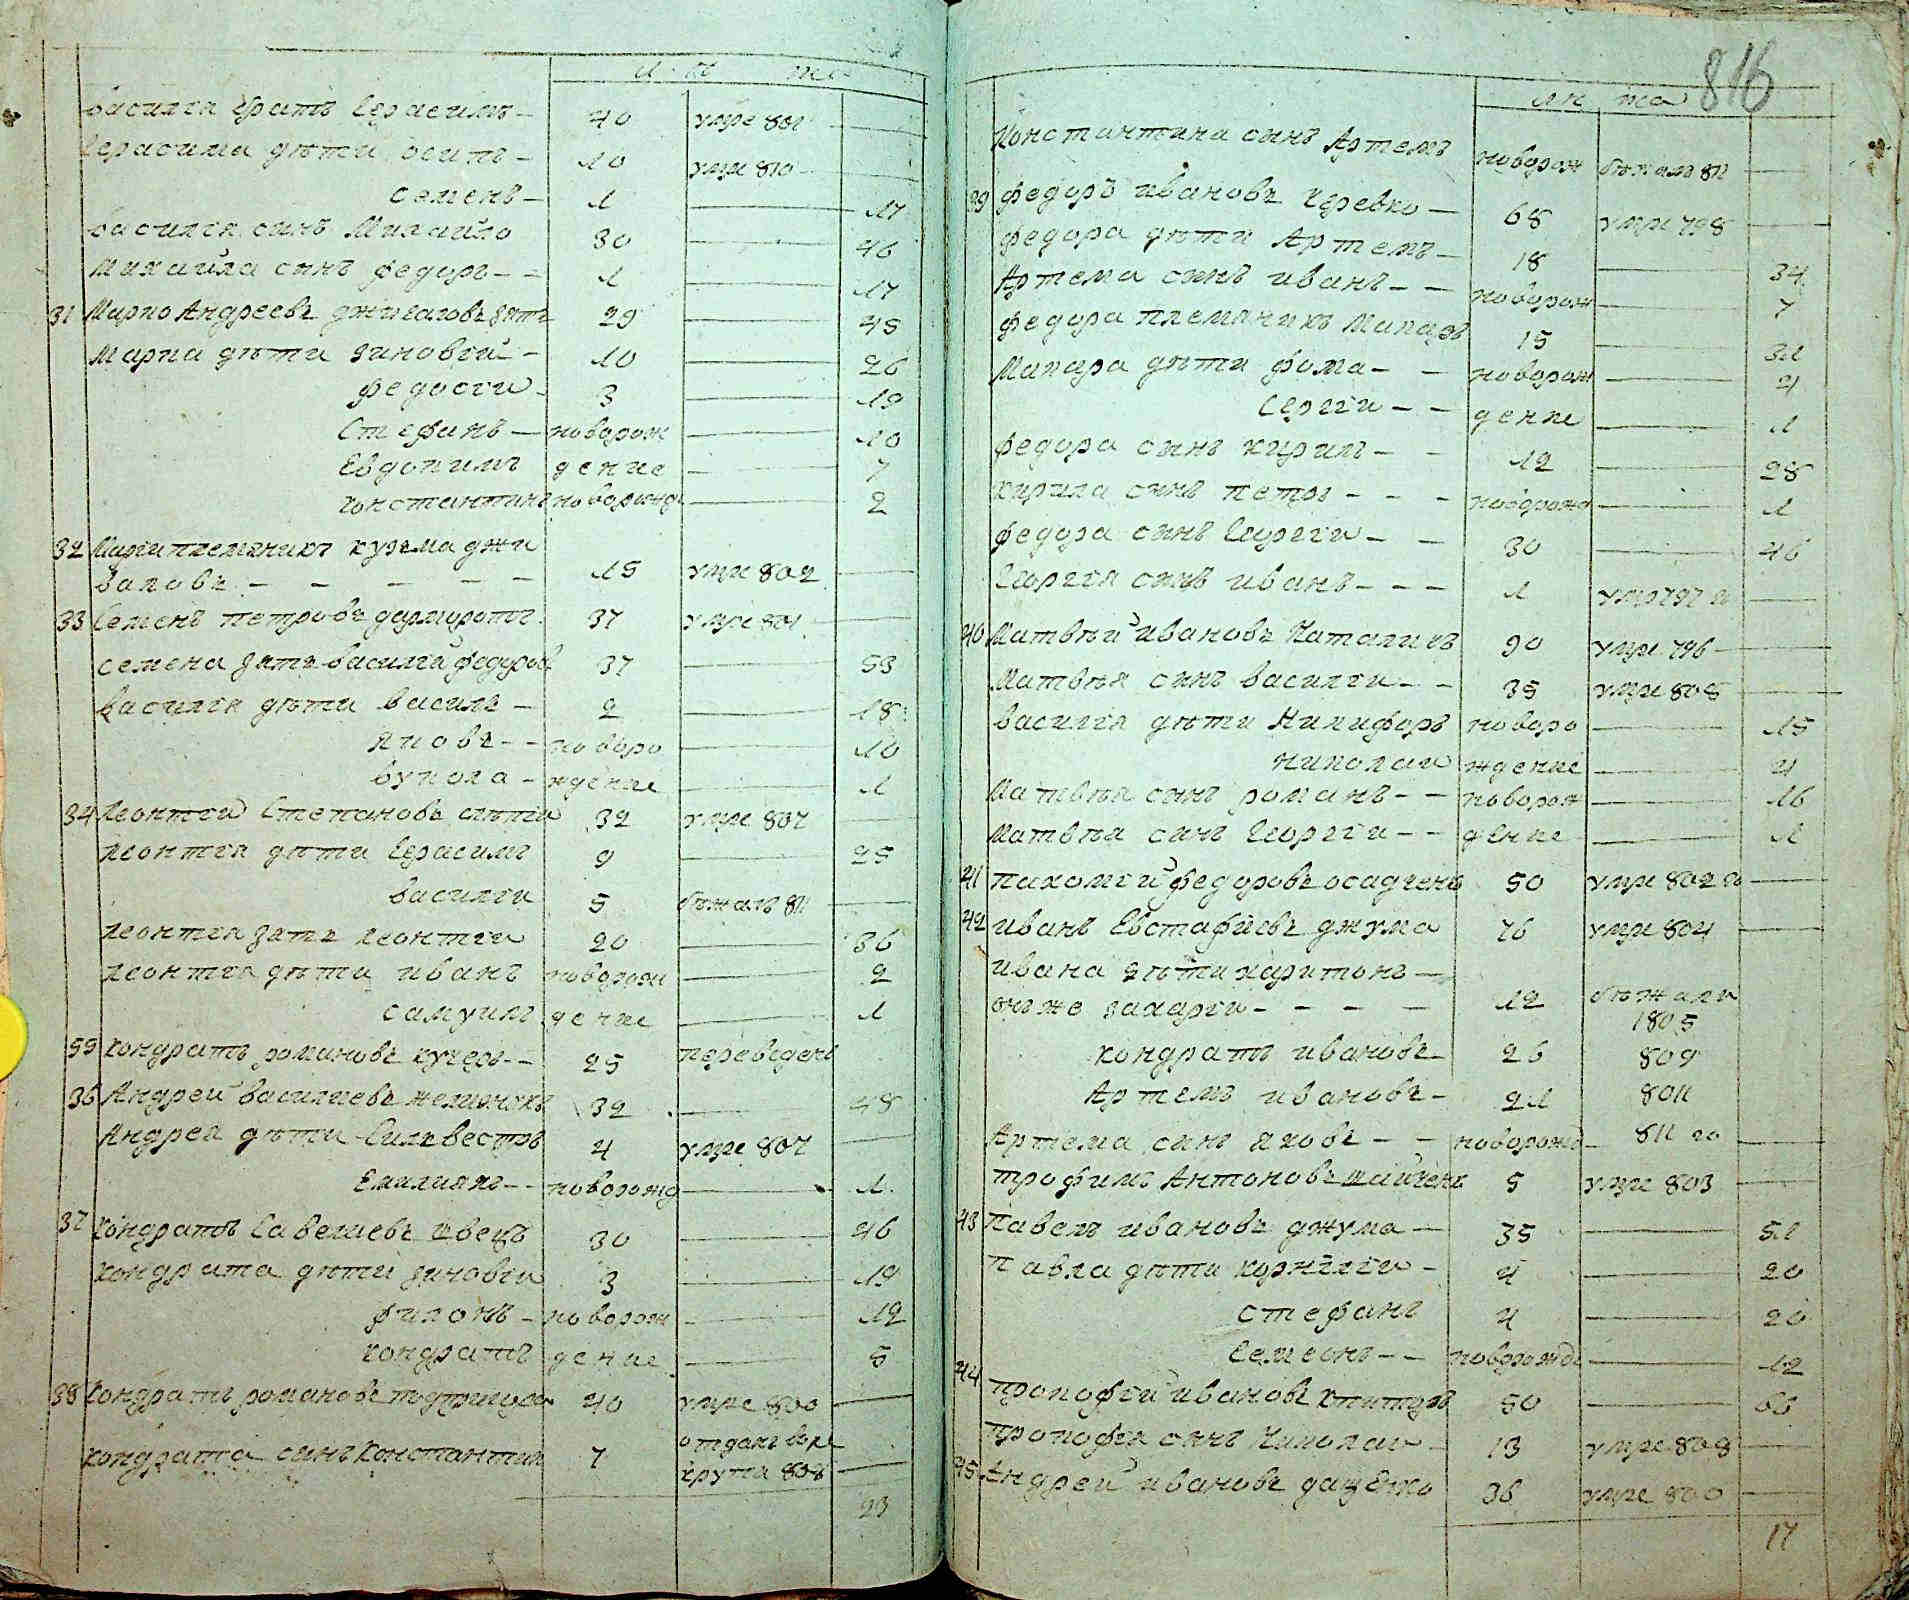 лѣта
Василія братъ Герасимъ 40 умре 801
Герасима дѣти осипъ 10 умре 810
семенъ 1 17
Василія синъ Михайло 30 46
Михайла синъ федоръ 1 17
31 Марко Андреевъ зять 29 45
Марка дѣти зиновій 10 26
федосій 3 19
Стефанъ новорож 10
Евдокимъ дение 7
константинъ новорожд 2
32 Марка племяникъ кузма джи
15 умре 802
33 Семенъ петровъ 37 умре 801
семена зять василій федоровъ 37 53
василія дѣти василь 2 18
яковъ новоро 10
вукола ждение 1
34 Леонтій Степановъ 32 умре 807
леонтія дѣти Герасимъ 9 25
василій 5 бѣжалъ 811
леонтія зять леонтій 20 36
леонтія дѣти иванъ новорож 2
самуилъ дение 1
35 кондратъ романовъ кучеръ 25 переведенъ
36 Андрей василиевъ 32 48
Андрея дѣти Силвестръ 4 умре 807
Емилиянъ новорожд 1
37 кондратъ Савелиевъ швецъ 30 46
кондрата дѣти зиновій 3 19
филонъ новорож 12
кондратъ дение 5
38 кондратъ романовъ 40 умре 800
кондрата синъ константинъ 7 отданъ въ ре
крути 808
23
816
лѣта
Константина сынъ Артемъ новорож бѣжалъ 811
39 федоръ ивановъ Черевко 68 умре 798
федора дѣти Артемъ 18 34
Артема синъ иванъ новорож 7
федора племяникъ Макаръ 15 31
Макара дѣти фома новорож 4
Сергій дение 1
федора сынъ кирилъ 12 28
кирила синъ петръ новорожд 1
федора синъ Георгій 30 46
Георгія синъ иванъ 1 умре 797 го
40 Матвѣй ивановъ 90 умре 796
Матвѣя синъ василій 35 умре 805
василія дѣти Никифоръ новоро 15
николай ждение 4
Матвѣя синъ романъ новорож 16
Матвѣя синъ Георгій дение 1
41 пахомій федоровъ осадченко 50 умре 802 го
42 иванъ Евстафиевъ джума 76 умре 804
ивана дѣти харитонъ
онъ же захарій 12 бѣжали
1805
кондратъ ивановъ 26 809
Артемъ ивановъ 21 8011
Артема синъ яковъ новорожд 811 го
трофимъ Антоновъ 5 умре 803
43 Павелъ ивановъ джума 35 51
павла дѣти корнілій 4 20
стефанъ 4 20
Семионъ новорожде 12
44 прокофій ивановъ 50 66
прокофія синъ Николай 13 умре 808
45 Андрей ивановъ дащенко 36 умре 800
17